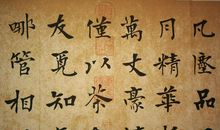 凡塵品
月精華
萬丈豪
僅以茶
友覓知
哪管相